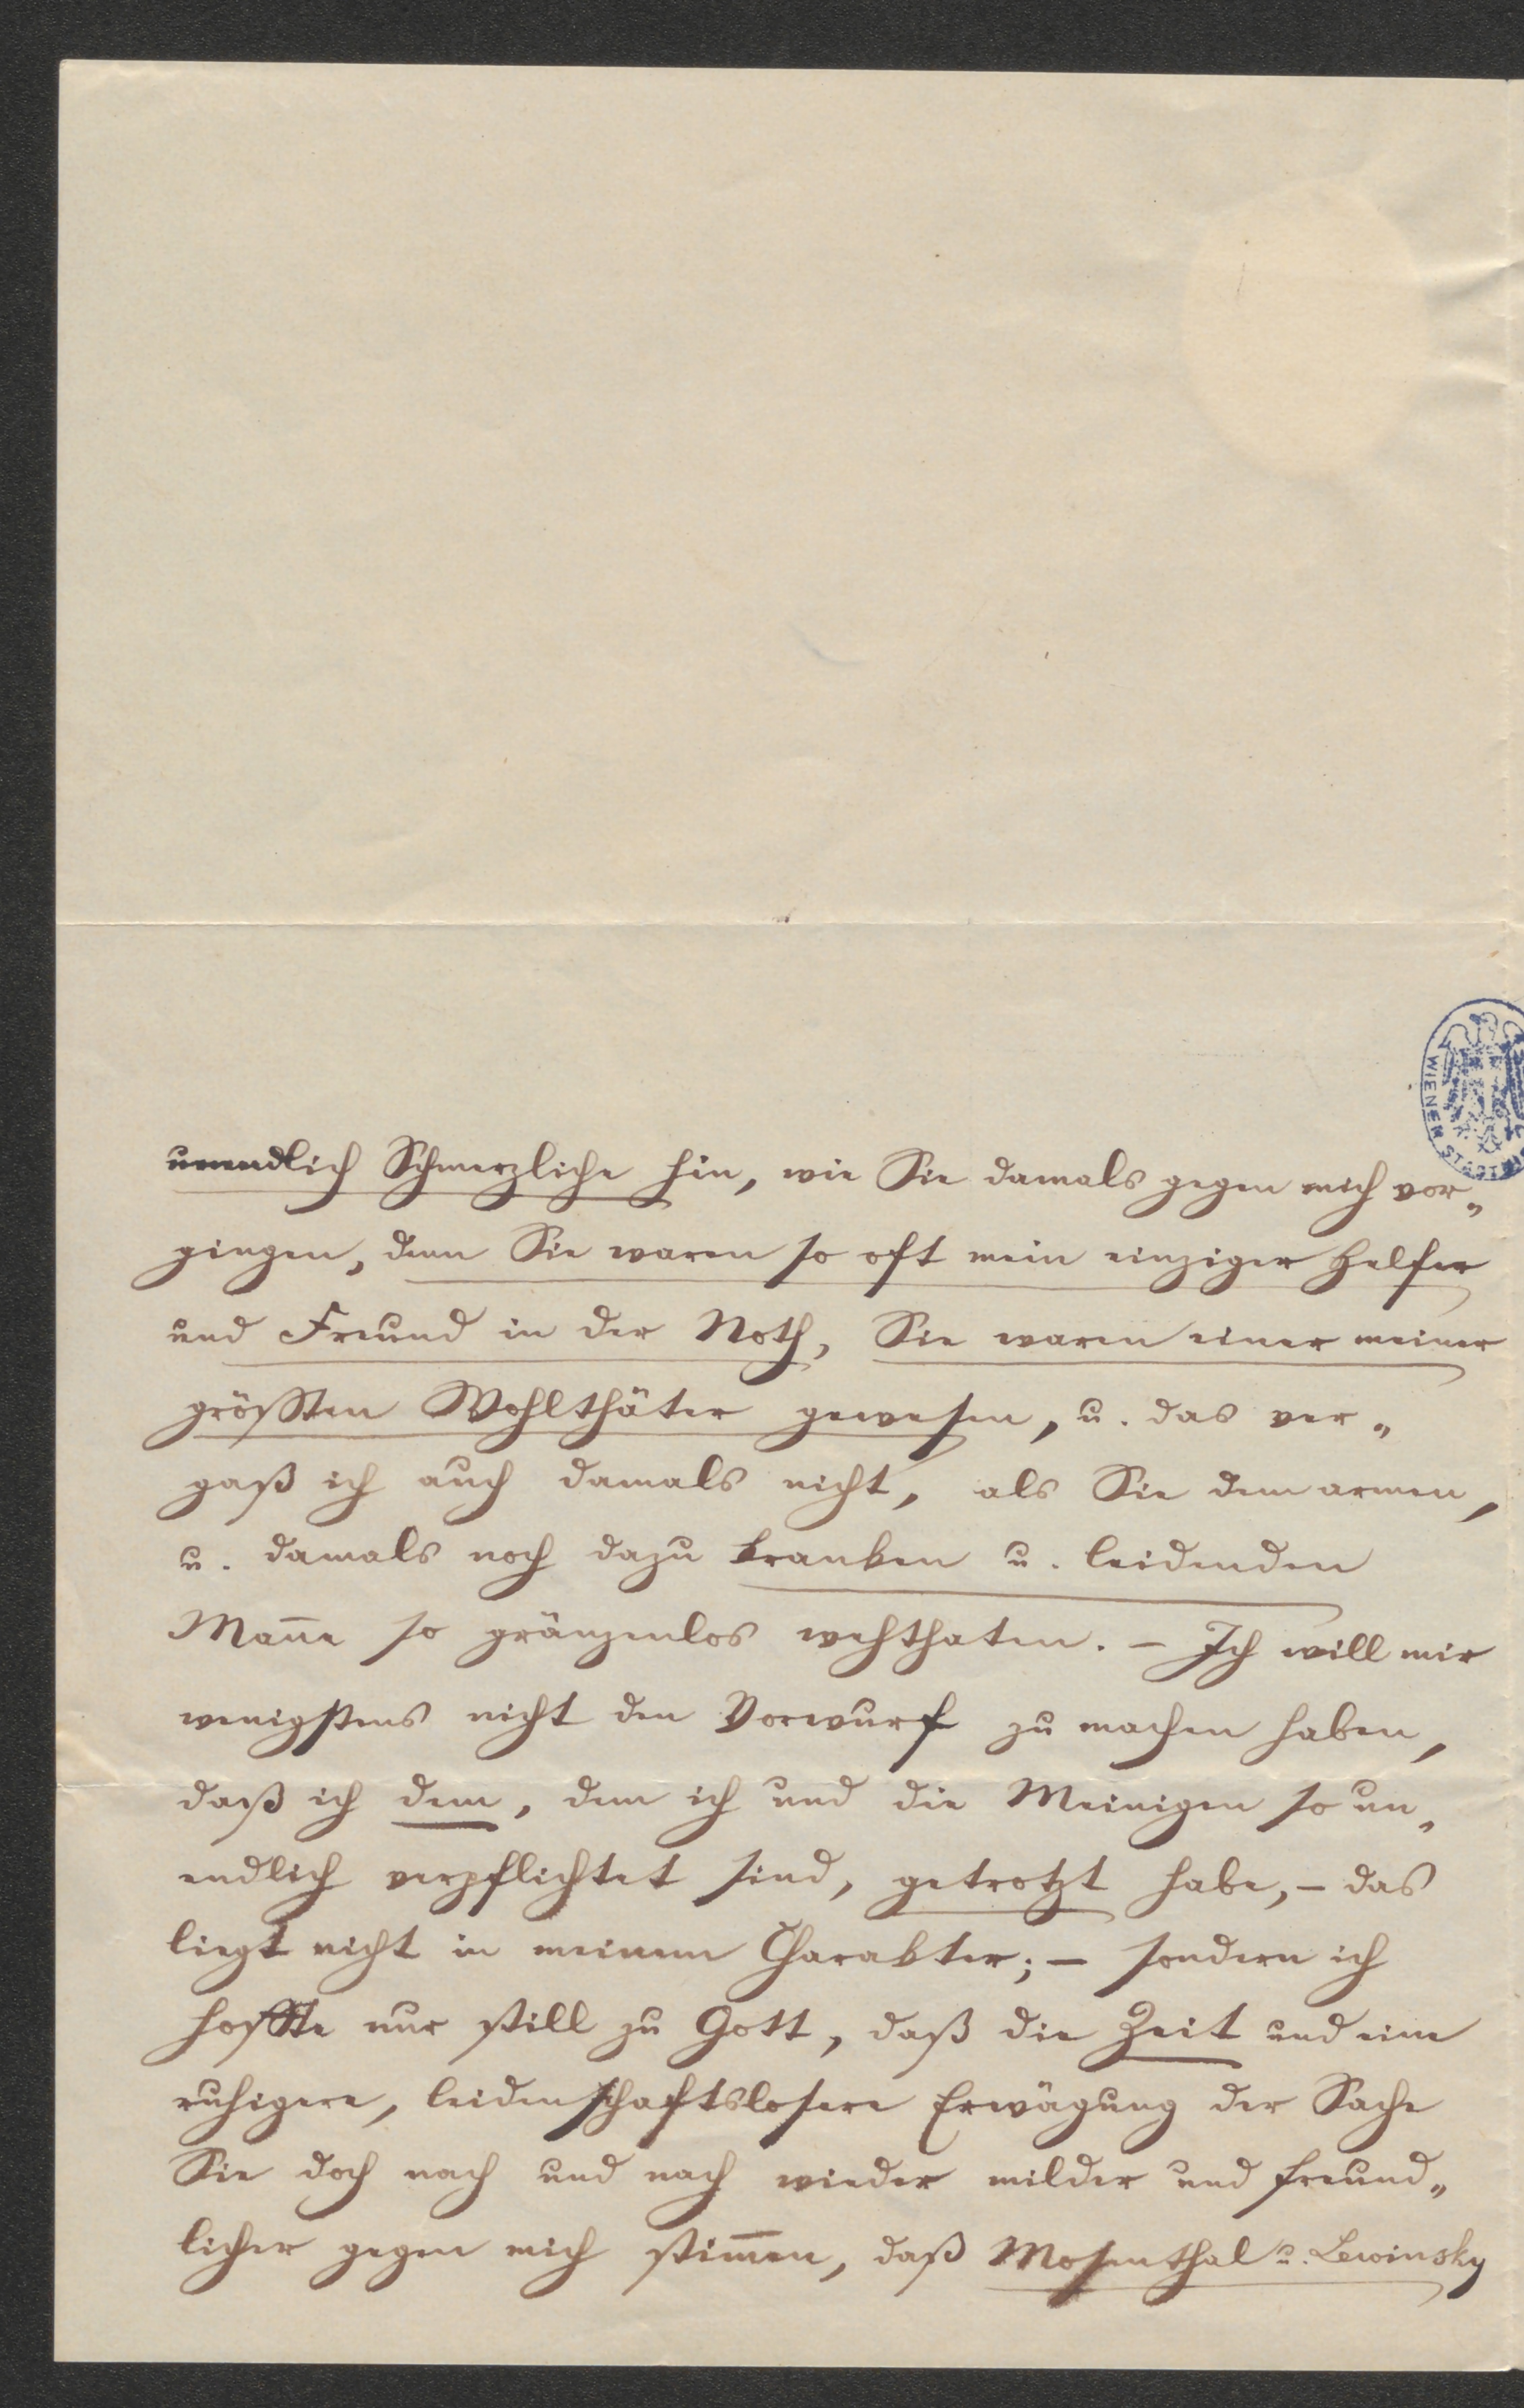 unendlich Schmerzliche hin, wie Sie damals gegen mich vor„
gingen, denn Sie waren so oft mein einziger Helfer
und Freund in der Noth, Sie waren einer meiner
größten Wohlthäter gewesen, u. das ver„
gaß ich auch damals nicht, als Sie dem armen,
u. damals noch dazu kranken u. leidenden
Mañe so gränzenlos wehthaten. – Ich will mir
wenigstens nicht den Vorwurf zu machen haben,
daß ich dem, dem ich und die Meinigen so un„
endlich verpflichtet sind, getrotzt habe, – das
liegt nicht in meinem Charakter; – sondern ich
hoffte nur still zu Gott, daß die Zeit und eine
ruhigere, leidenschaftslosere Erwägung der Sache
Sie doch nach und nach wieder milder und freund„
licher gegen mich stim̄en, daß Mosenthal u. Lewinsky
WIENER